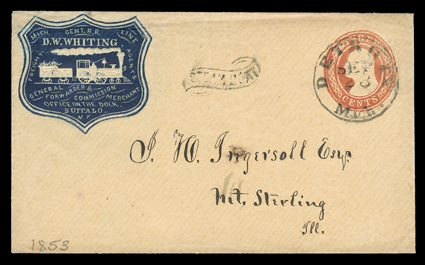 MICH. CENT. R.R. LINE
D.W. WHITING
FREIGHT AGENT
GENERAL
FORWARDER &
COMMISSION MERCHANT
OFFICE ON THE DOCK,
BUFFALO.
STEAMBOAT
DETROIT
SEP
MICH.
CENTS
J. H. Ingersoll Esq.
Mt. Sterling
Ill.
1853